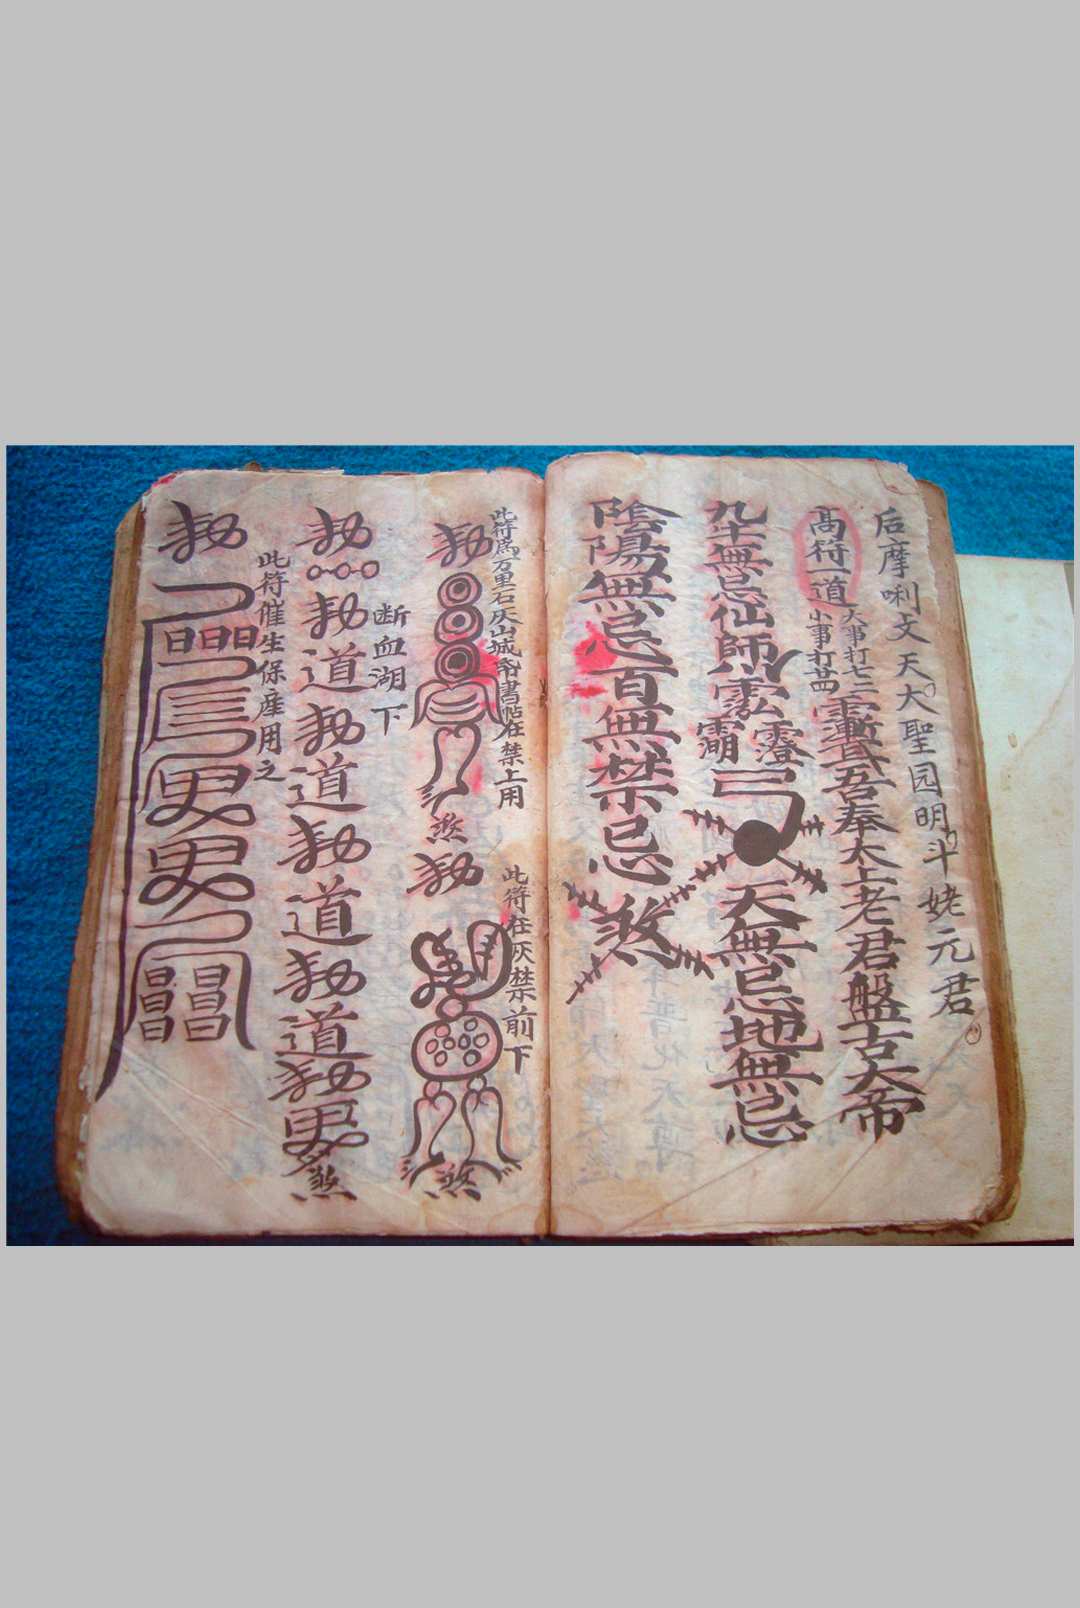 后摩唎文天大聖园明斗姥元君
高符一道
大事打七二
小事打
吾奉太上老君盤古大帝
無忌仙師
天無忌地無忌
陰陽無忌百無禁忌
煞
此符為万里石灰山城
書帖在禁上用
勅
煞
此符在灰禁前下
勅
煞
断血湖下
勅
勅道勅道勅道勅道勅
煞
此符催生保産用之
勅